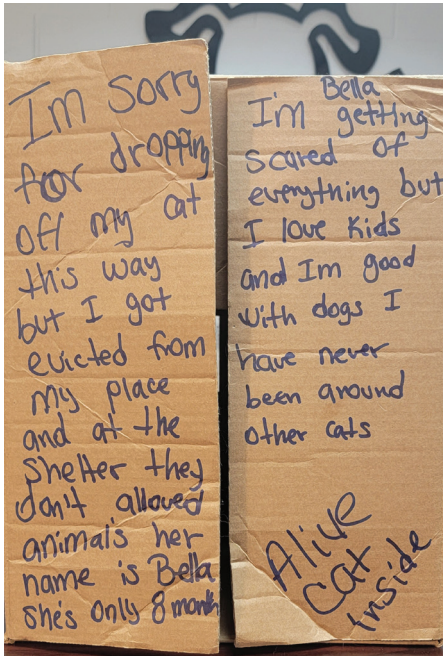 I'm sorry
for dropping
off my cat
this way
but I got
evicted from
my place
and at the
shelter they
don't allowed
animals her
name is Bella
she's only 8 month
Bella
I'm getting
scared of
everything but
I love kids
and Im good
with dogs I
have never
been around
other cats
Alive
cat
inside